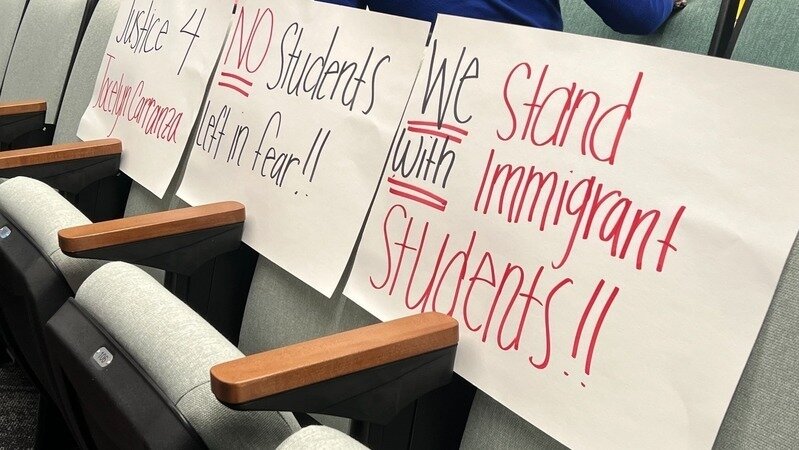 Justice 4
Jocelyn Carranza
NO Students
Left in fear!!
We Stand
With Immigrant
Students!!